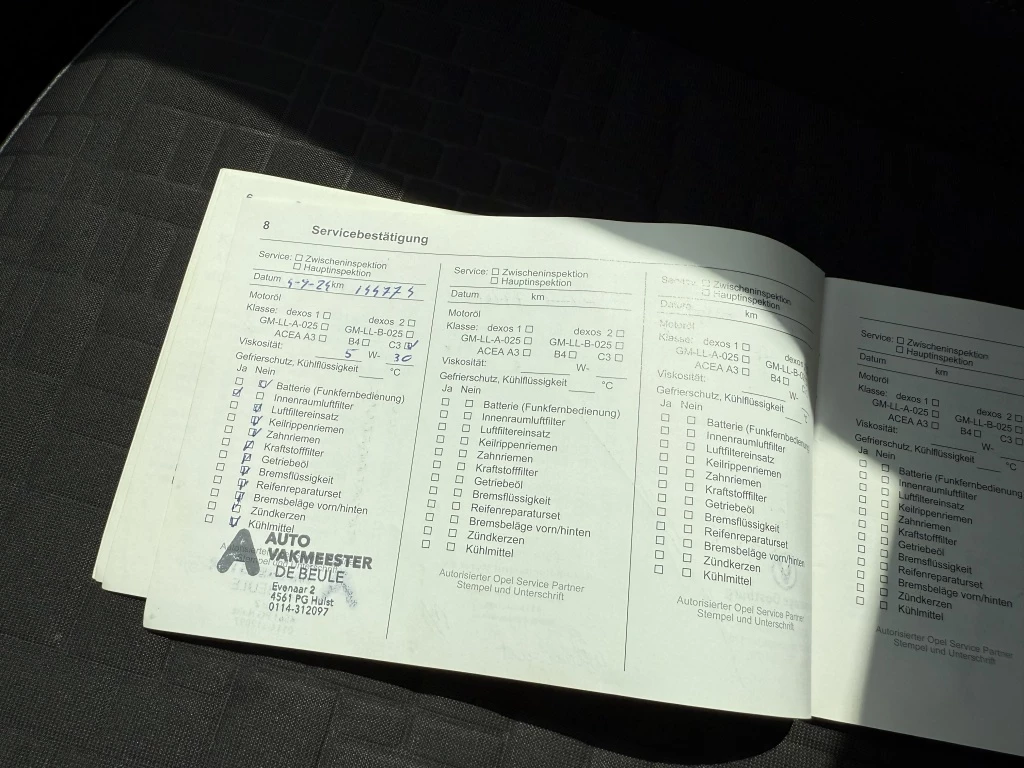 8 Servicebestätigung
Service: Zwischeninspektion
Hauptinspektion
Datum 4-4-24 km
Motoröl
Klasse: dexos 1 dexos 2
GM-LL-A-025 GM-LL-B-025
ACEA A3 B4 C3
Viskosität: 5 W- 30
Gefrierschutz, Kühlflüssigkeit °C
Ja Nein
Batterie (Funkfernbedienung)
Innenraumluftfilter
Luftfiltereinsatz
Keilrippenriemen
Zahnriemen
Kraftstofffilter
Getriebeöl
Bremsflüssigkeit
Reifenreparaturset
Bremsbeläge vorn/hinten
Zündkerzen
Kühlmittel
AUTO
VAKMEESTER
DE BEULE
Evenaar 2
4561 PG Hulst
0114-312097
Service: Zwischeninspektion
Hauptinspektion
Datum km
Motoröl
Klasse: dexos 1 dexos 2
GM-LL-A-025 GM-LL-B-025
ACEA A3 B4 C3
Viskosität: W-
Gefrierschutz, Kühlflüssigkeit °C
Ja Nein
Batterie (Funkfernbedienung)
Innenraumluftfilter
Luftfiltereinsatz
Keilrippenriemen
Zahnriemen
Kraftstofffilter
Getriebeöl
Bremsflüssigkeit
Reifenreparaturset
Bremsbeläge vorn/hinten
Zündkerzen
Kühlmittel
Autorisierter Opel Service Partner
Stempel und Unterschrift
Service: Zwischeninspektion
Hauptinspektion
Datum km
Motoröl
Klasse: dexos 1
GM-LL-A-025 GM-LL-B-0
ACEA A3 B4
Viskosität: W-
Gefrierschutz, Kühlflüssigkeit
Ja Nein
Batterie (Funkfernbedienung
Innenraumluftfilter
Luftfiltereinsatz
Keilrippenriemen
Zahnriemen
Kraftstofffilter
Getriebeöl
Bremsflüssigkeit
Reifenreparaturset
Bremsbeläge vorn/hinten
Zündkerzen
Kühlmittel
Autorisierter Opel Service Partner
Stempel und Unterschrift
Service: Zwischeninspektion
Hauptinspektion
Datum km
Motoröl
Klasse: dexos 1 dexos 2
GM-LL-A-025 GM-LL-B-025
ACEA A3 B4 C3
Viskosität: W-
Gefrierschutz, Kühlflüssigkeit °C
Ja Nein
Batterie (Funkfernbedienung
Innenraumluftfilter
Luftfiltereinsatz
Keilrippenriemen
Zahnriemen
Kraftstofffilter
Getriebeöl
Bremsflüssigkeit
Reifenreparaturset
Bremsbeläge vorn/hinten
Zündkerzen
Kühlmittel
Autorisierter Opel Service Partner
Stempel und Unterschrift